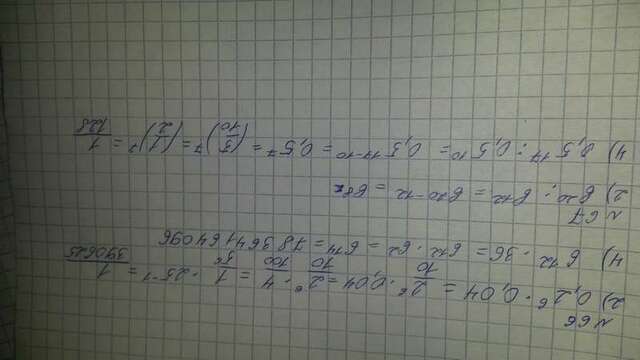 №66
2) 0,2⁶ · 0,04 = 2⁶/10 · 0,04 = 2⁶/10 · 4/100 = 1/5⁶ · 25⁻¹ = 1/390625
4) 6¹² · 36 = 6¹² · 6² = 6¹⁴ = 78364164096
№67
2) 6²⁰ : 6¹² = 6²⁰⁻¹² = 6⁸
4) 0,5¹⁷ : 0,5¹⁰ = 0,5¹⁷⁻¹⁰ = 0,5⁷ = (5/10)⁷ = (1/2)⁷ = 1/128